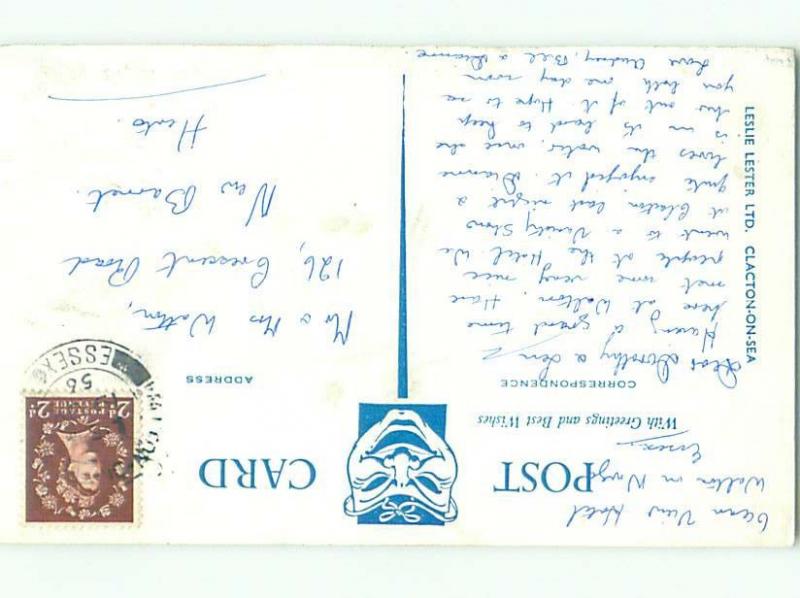 Ocean View Hotel
Walton on Naze
Essex.
POST CARD
With Greetings and Best Wishes
CORRESPONDENCE
ADDRESS
Dear Dorothy & Len
Having a grand time
here at Walton. Have
met some very nice
people at the Hotel. We
went to a Variety Show
at Clacton last night &
quite enjoyed it. Dianne
loves the water, once she
is in its hard to keep
her out of it. Hope to see
you both one day soon
Love Audrey, Bill & Dianne
Mr & Mrs Watton,
126, Crescent Road
New Barnet.
Herts.
LESLIE LESTER LTD. CLACTON-ON-SEA
2d POSTAGE REVENUE 2d
56
ESSEX